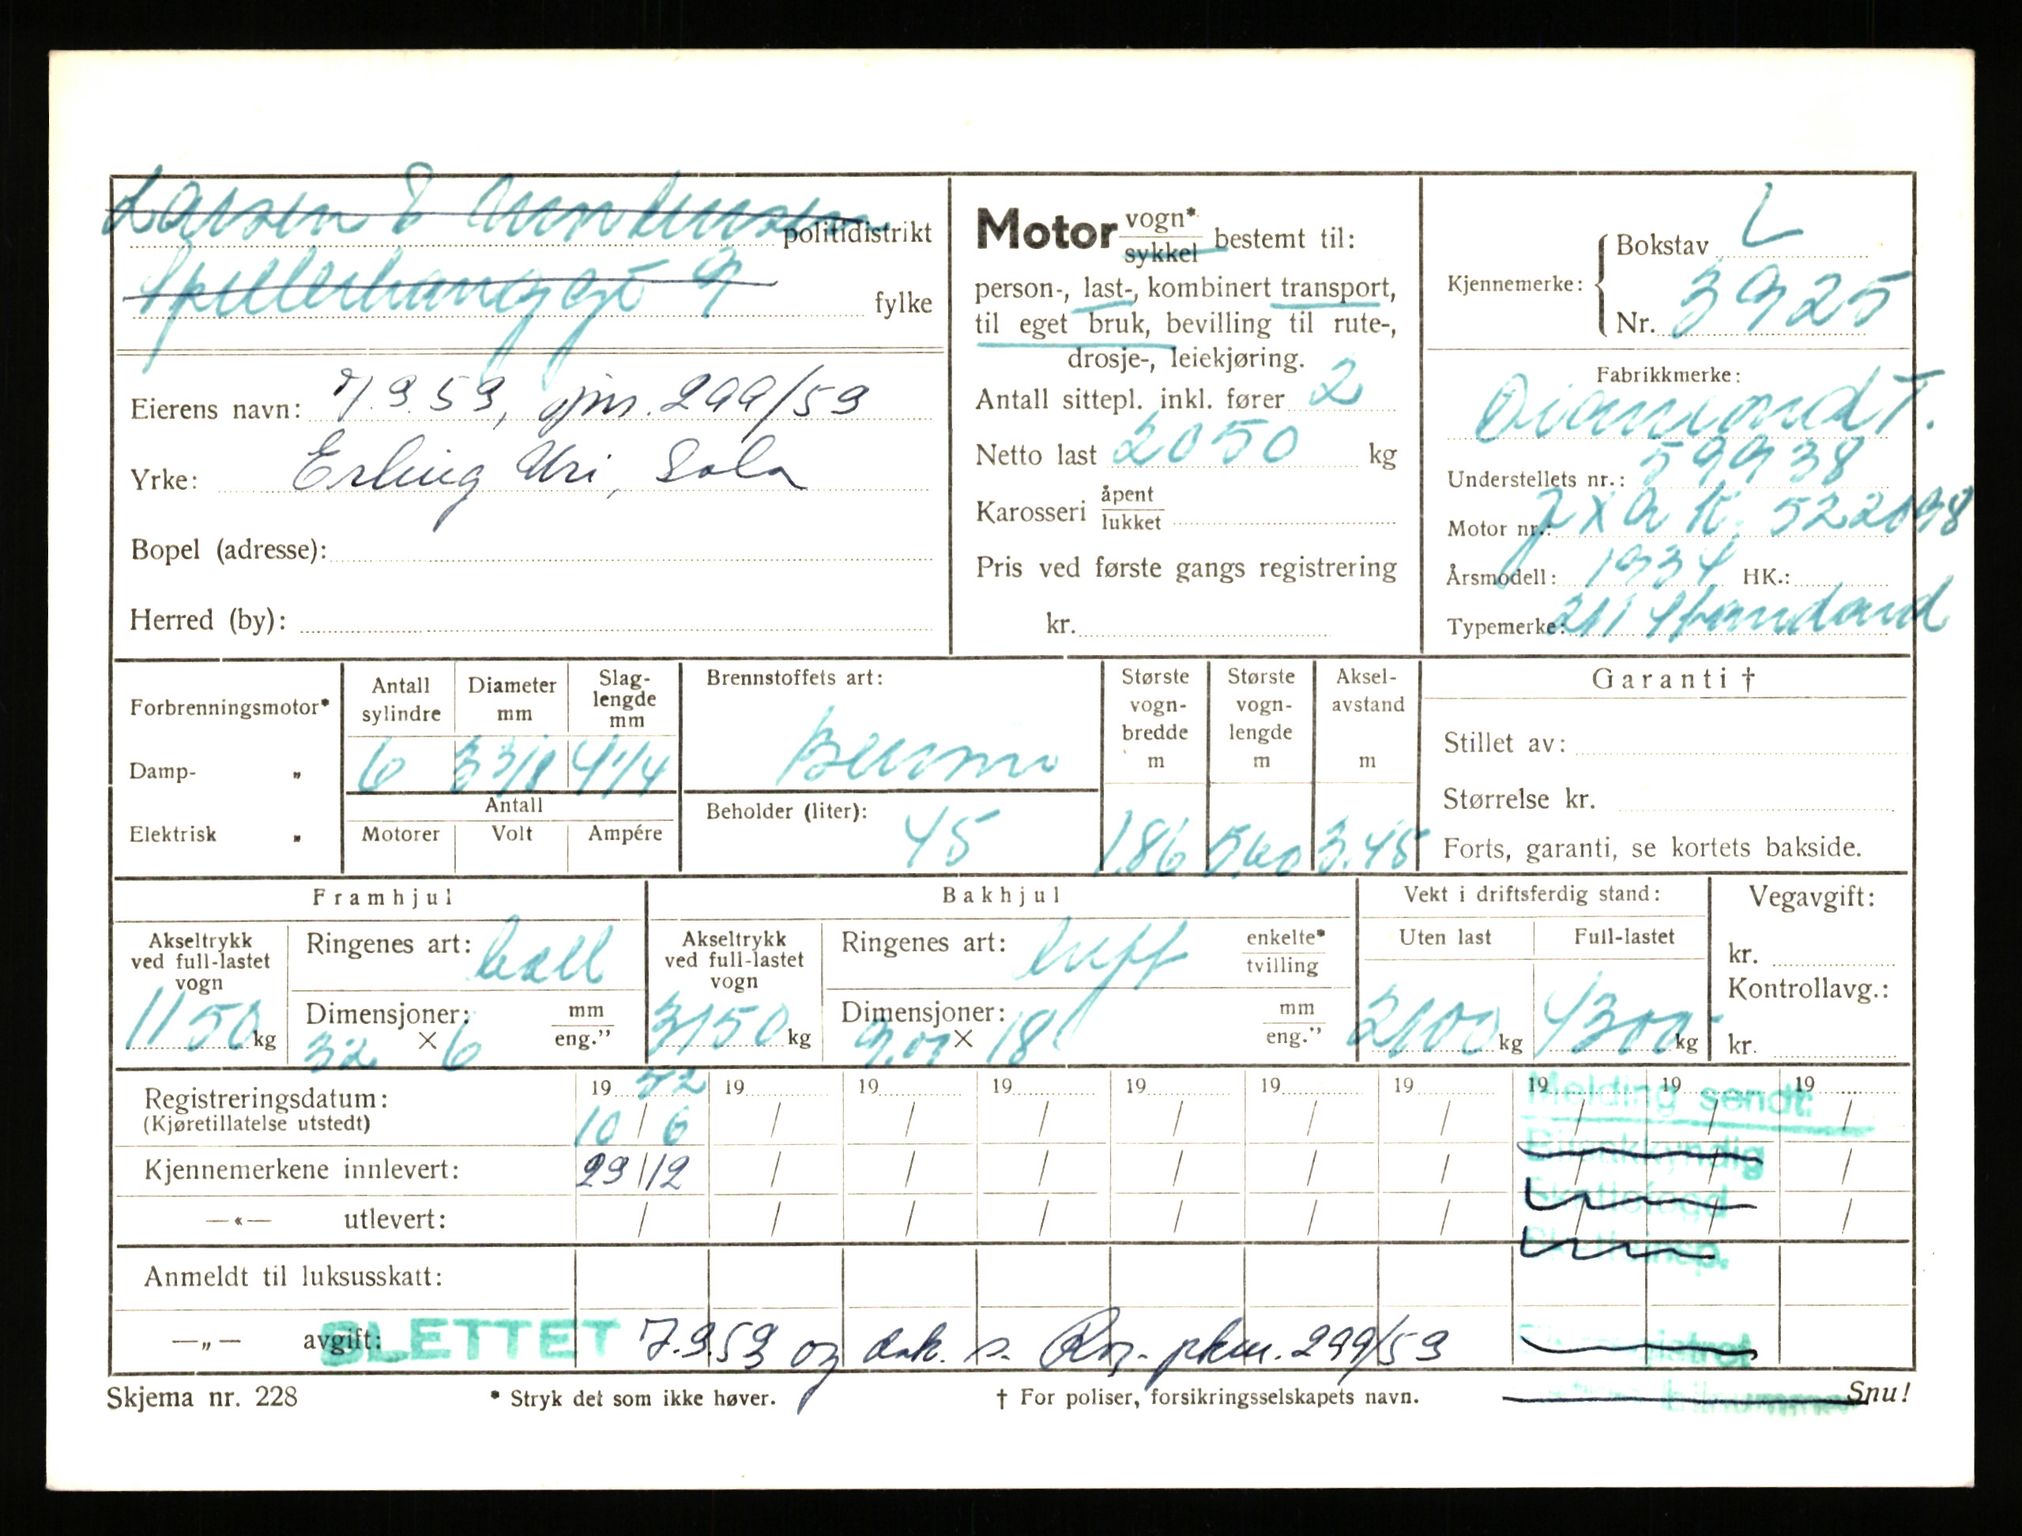 Larsen & Amundsen politidistrikt
fylke
Eierens navn: 7.9.59, jnr. 299/59
Yrke: Erling Uri, Sola
Bopel (adresse):
Herred (by):
Motor vogn* sykkel bestemt til:
person-, last-, kombinert transport,
til eget bruk, bevilling til rute-,
drosje-, leiekjøring.
Antall sittepl. inkl. fører 2
Netto last 2050 kg
Karosseri åpent lukket
Pris ved første gangs registrering
kr.
Kjennemerke: Bokstav L
Nr. 3925
Fabrikkmerke:
Diamond T.
Understellets nr.: 59938
Motor nr.: 522098
Årsmodell: 1934 HK.:
Typemerke: 211 Standard
Forbrenningsmotor*
Damp- „
Elektrisk „
Antall sylindre 6
Diameter mm 3 3/8
Slag-lengde mm 4 1/4
Antall
Motorer Volt Ampére
Brennstoffets art: Bensin
Beholder (liter): 45
Største vogn-bredde m 1.86
Største vogn-lengde m 5,60
Aksel-avstand m 3.45
Garanti †
Stillet av:
Størrelse kr.
Forts, garanti, se kortets bakside.
Framhjul
Akseltrykk ved full-lastet vogn 1150 kg
Ringenes art: ball
Dimensjoner: 32 × 6 mm eng."
Bakhjul
Akseltrykk ved full-lastet vogn 3150 kg
Ringenes art: luft enkelte* tvilling
Dimensjoner: 9.00 × 18 mm eng."
Vekt i driftsferdig stand:
Uten last 2100 kg
Full-lastet 4300 kg
Vegavgift:
kr.
Kontrollavg.:
kr.
Registreringsdatum: 19 52 19 19 19 19 19 19 19 19 19
(Kjøretillatelse utstedt) 10/6 / / / / / / / / /
Kjennemerkene innlevert: 29/12 / / / / / / / / /
—«— utlevert: / / / / / / / / / /
Melding sendt:
Bilsakkyndig
Skattefogd
Anmeldt til luksusskatt:
—„— avgift: SLETTET 7.9.59 og dek. s. Rog. pkm. 299/59
Skjema nr. 228 * Stryk det som ikke høver. † For poliser, forsikringsselskapets navn. Snu!